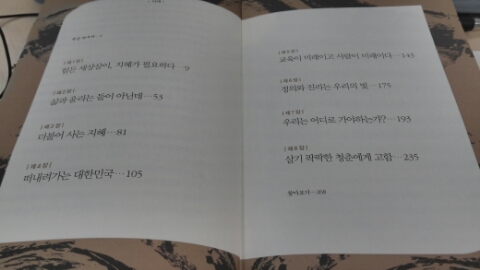 [제1장]
힘든 세상살이, 지혜가 필요하다—9
[제2장]
삶과 올라는 둘이 아닌데—53
[제3장]
더불어 사는 지혜—81
[제4장]
떠내려가는 대한민국—105
[제5장]
교육이 미래이고 사람이 미래이다—143
[제6장]
정의와 진리는 우리의 빛—175
[제7장]
우리는 어디로 가야하는가?—193
[제8장]
살기 팍팍한 청춘에게 고함—235
찾아보기